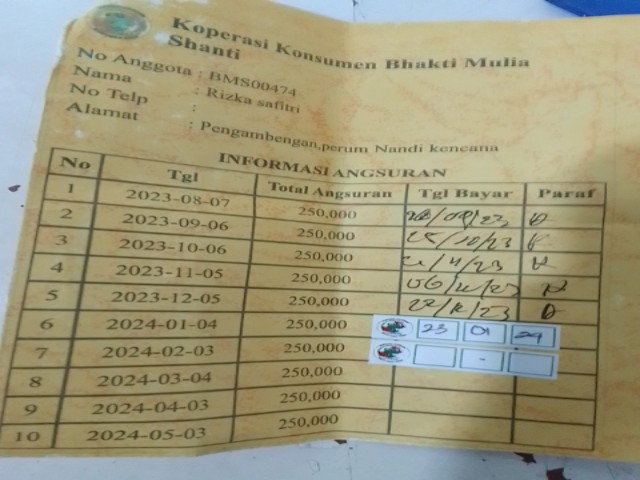 Koperasi Konsumen Bhakti Mulia
Shanti
No Anggota : BMS00474
Nama : Rizka safitri
No Telp :
Alamat : Pengambengan,perum Nandi kencana
INFORMASI ANGSURAN
No Tgl Total Angsuran Tgl Bayar Paraf
1 2023-08-07 250,000 /09/23
2 2023-09-06 250,000 25/10/23
3 2023-10-06 250,000 /11/23
4 2023-11-05 250,000 06/12/23
5 2023-12-05 250,000 27/12/23
6 2024-01-04 250,000 23 01 24
7 2024-02-03 250,000 -
8 2024-03-04 250,000
9 2024-04-03 250,000
10 2024-05-03 250,000